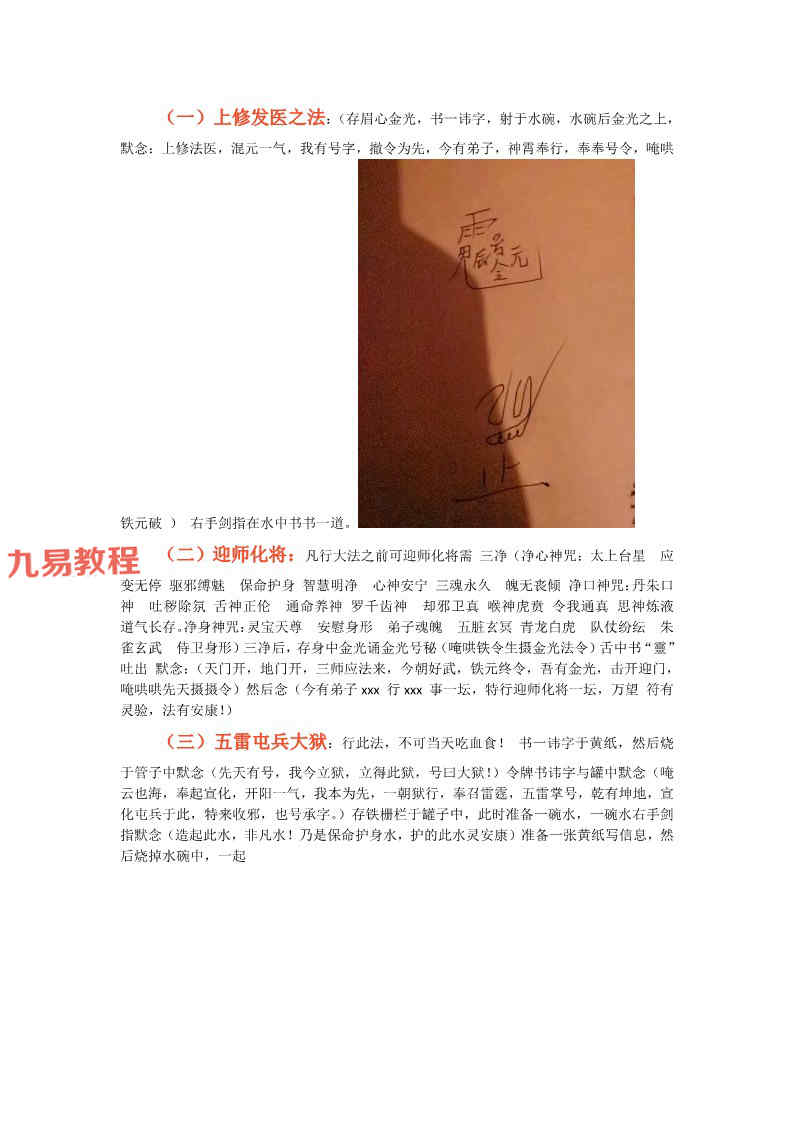 （一）上修发医之法：（存眉心金光，书一讳字，射于水碗，水碗后金光之上，
默念：上修法医，混元一气，我有号字，撤令为先，今有弟子，神霄奉行，奉奉号令，唵哄
铁元破 ） 右手剑指在水中书书一道。
九易教程
（二）迎师化将：凡行大法之前可迎师化将需 三净（净心神咒：太上台星 应
变无停 驱邪缚魅 保命护身 智慧明净 心神安宁 三魂永久 魄无丧倾 净口神咒：丹朱口
神 吐秽除氛 舌神正伦 通命养神 罗千齿神 却邪卫真 喉神虎贲 令我通真 思神炼液
道气长存。净身神咒：灵宝天尊 安慰身形 弟子魂魄 五脏玄冥 青龙白虎 队仗纷纭 朱
雀玄武 侍卫身形）三净后，存身中金光诵金光号秘（唵哄铁令生摄金光法令）舌中书“靈”
吐出 默念：（天门开，地门开，三师应法来，今朝好武，铁元终令，吾有金光，击开迎门，
唵哄哄先天摄摄令）然后念（今有弟子 xxx 行 xxx 事一坛，特行迎师化将一坛，万望 符有
灵验，法有安康！）
（三）五雷屯兵大狱：行此法，不可当天吃血食！ 书一讳字于黄纸，然后烧
于管子中默念（先天有号，我今立狱，立得此狱，号曰大狱！）令牌书讳字与罐中默念（唵
云也海，奉起宣化，开阳一气，我本为先，一朝狱行，奉召雷霆，五雷掌号，乾有坤地，宣
化屯兵于此，特来收邪，也号承字。）存铁栅栏于罐子中，此时准备一碗水，一碗水右手剑
指默念（造起此水，非凡水！乃是保命护身水，护的此水灵安康）准备一张黄纸写信息，然
后烧掉水碗中，一起